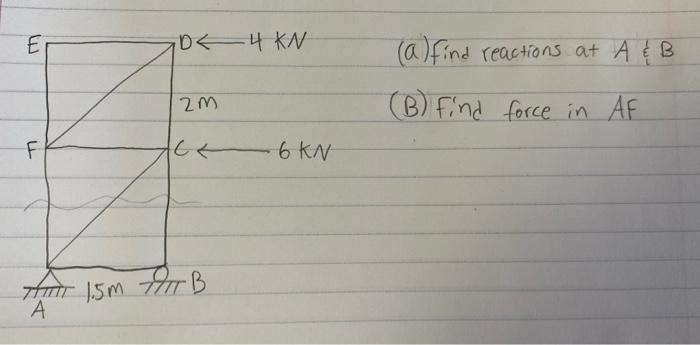 E D ← 4 KN
(a) find reactions at A & B
2m
(B) Find force in AF
F C ← 6 KN
1.5m B
A